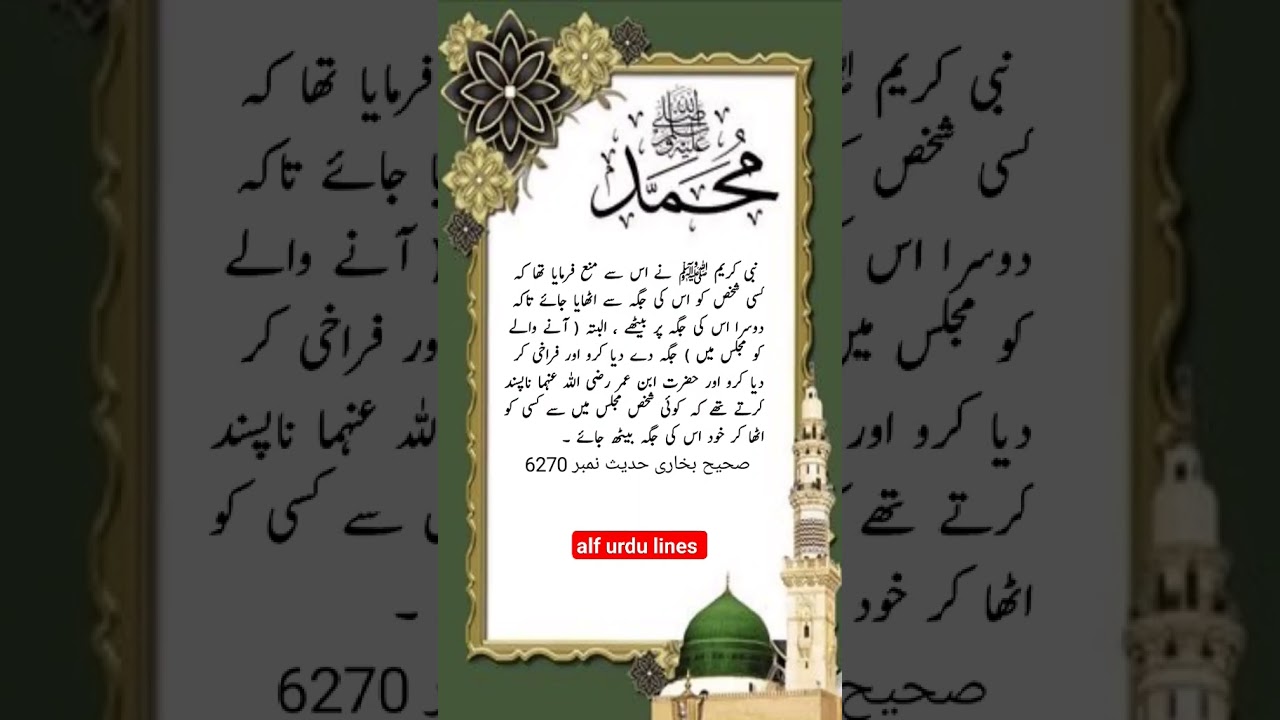 صلى الله عليه وسلم
مُحَمَّد
نبی کریم ﷺ نے اس سے منع فرمایا تھا کہ
کسی شخص کو اس کی جگہ سے اٹھایا جائے تاکہ
دوسرا اس کی جگہ پر بیٹھے ، البتہ ( آنے والے
کو مجلس میں ) جگہ دے دیا کرو اور فراخی کر
دیا کرو اور حضرت ابن عمر رضی اللہ عنہما ناپسند
کرتے تھے کہ کوئی شخص مجلس میں سے کسی کو
اٹھا کر خود اس کی جگہ بیٹھ جائے ۔
صحیح بخاری حدیث نمبر 6270
alf urdu lines